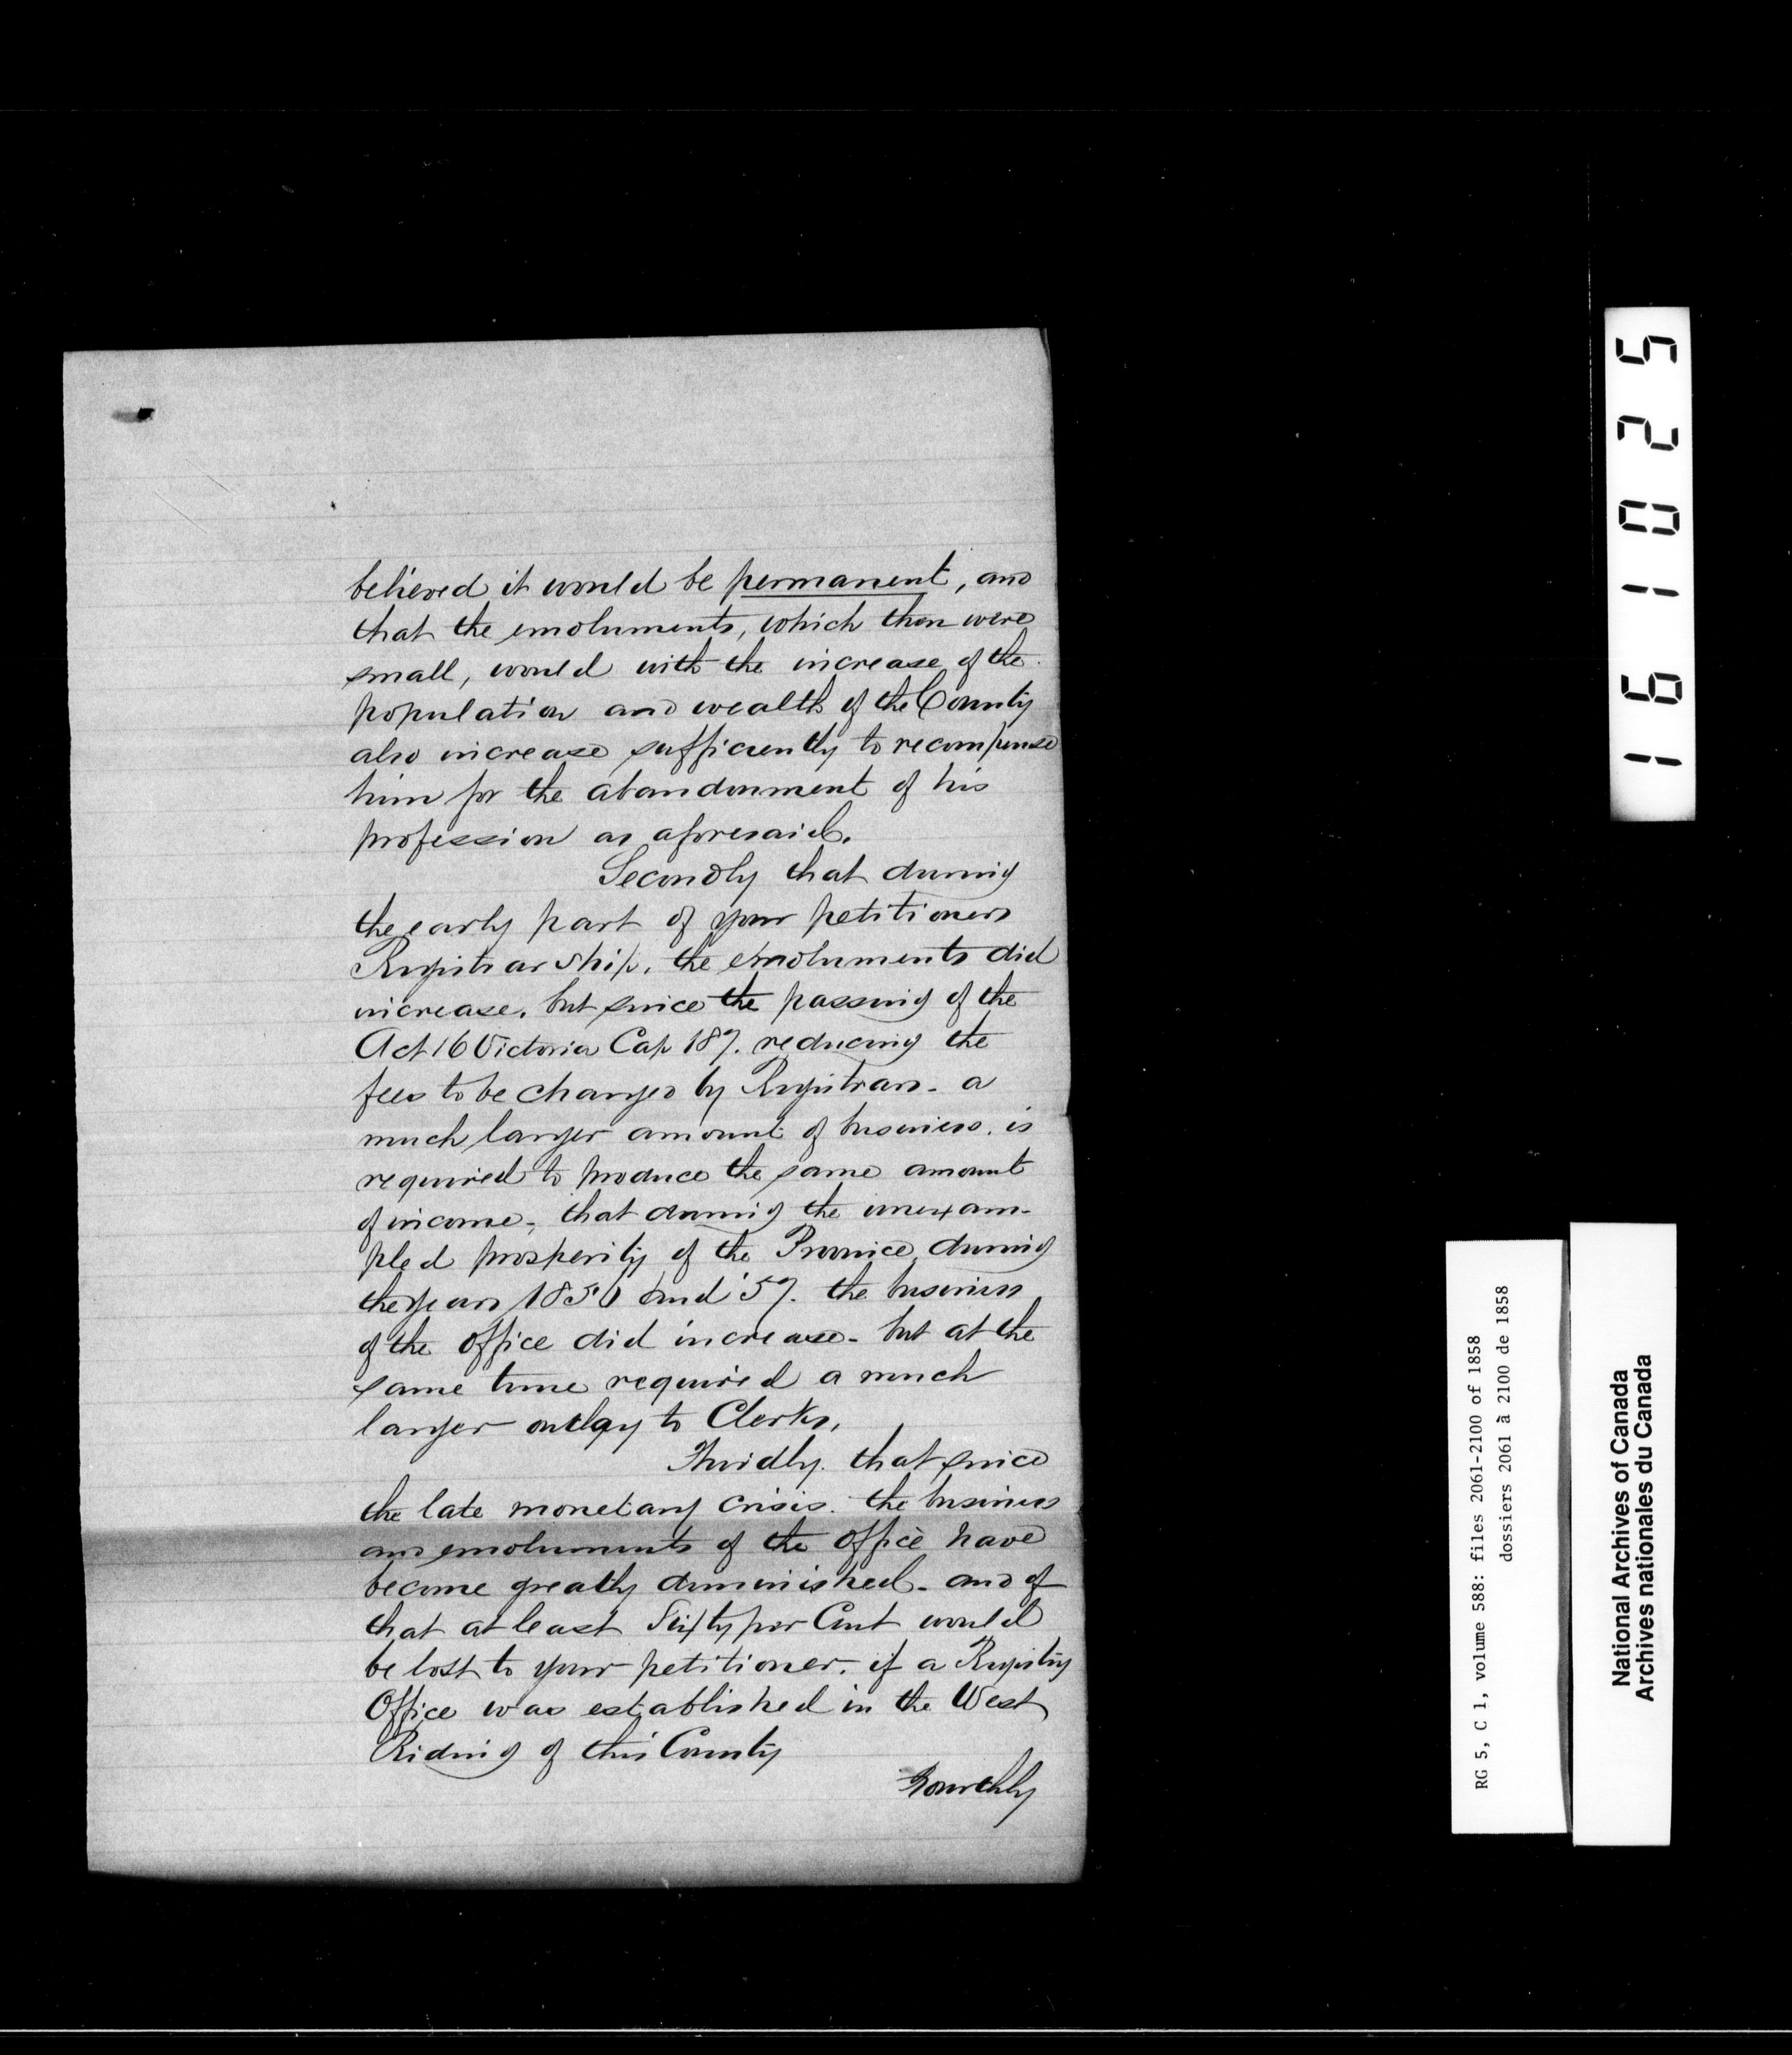 believed it would be permanent, and
that the emoluments, which then were
small, would with the increase of the
population and wealth of the County
also increase sufficiently to recompense
him for the abandonment of his
profession as aforesaid.
Secondly that during
the early part of your petitioners
Registrarship, the emoluments did
increase, but since the passing of the
Act 16 Victoria Cap 187. reducing the
fees to be charged by Registrars - a
much larger amount of business. is
required to produce the same amount
of income; that during the unexam-
pled prosperity of the Province during
the years 1856 and '57. the business
of the office did increase - but at the
same time required a much
larger outlay to Clerks,
Thirdly. that since
the late monetary crisis. the business
and emoluments of the office have
become greatly diminished - and of
that at least Sixty per Cent would
be lost to your petitioner. if a Registry
Office was established in the West
Riding of this County
Fourthly
161025
RG 5, C 1, volume 588: files 2061-2100 of 1858
dossiers 2061 à 2100 de 1858
National Archives of Canada
Archives nationales du Canada